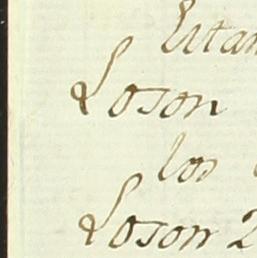 Loson
los
Loson 2